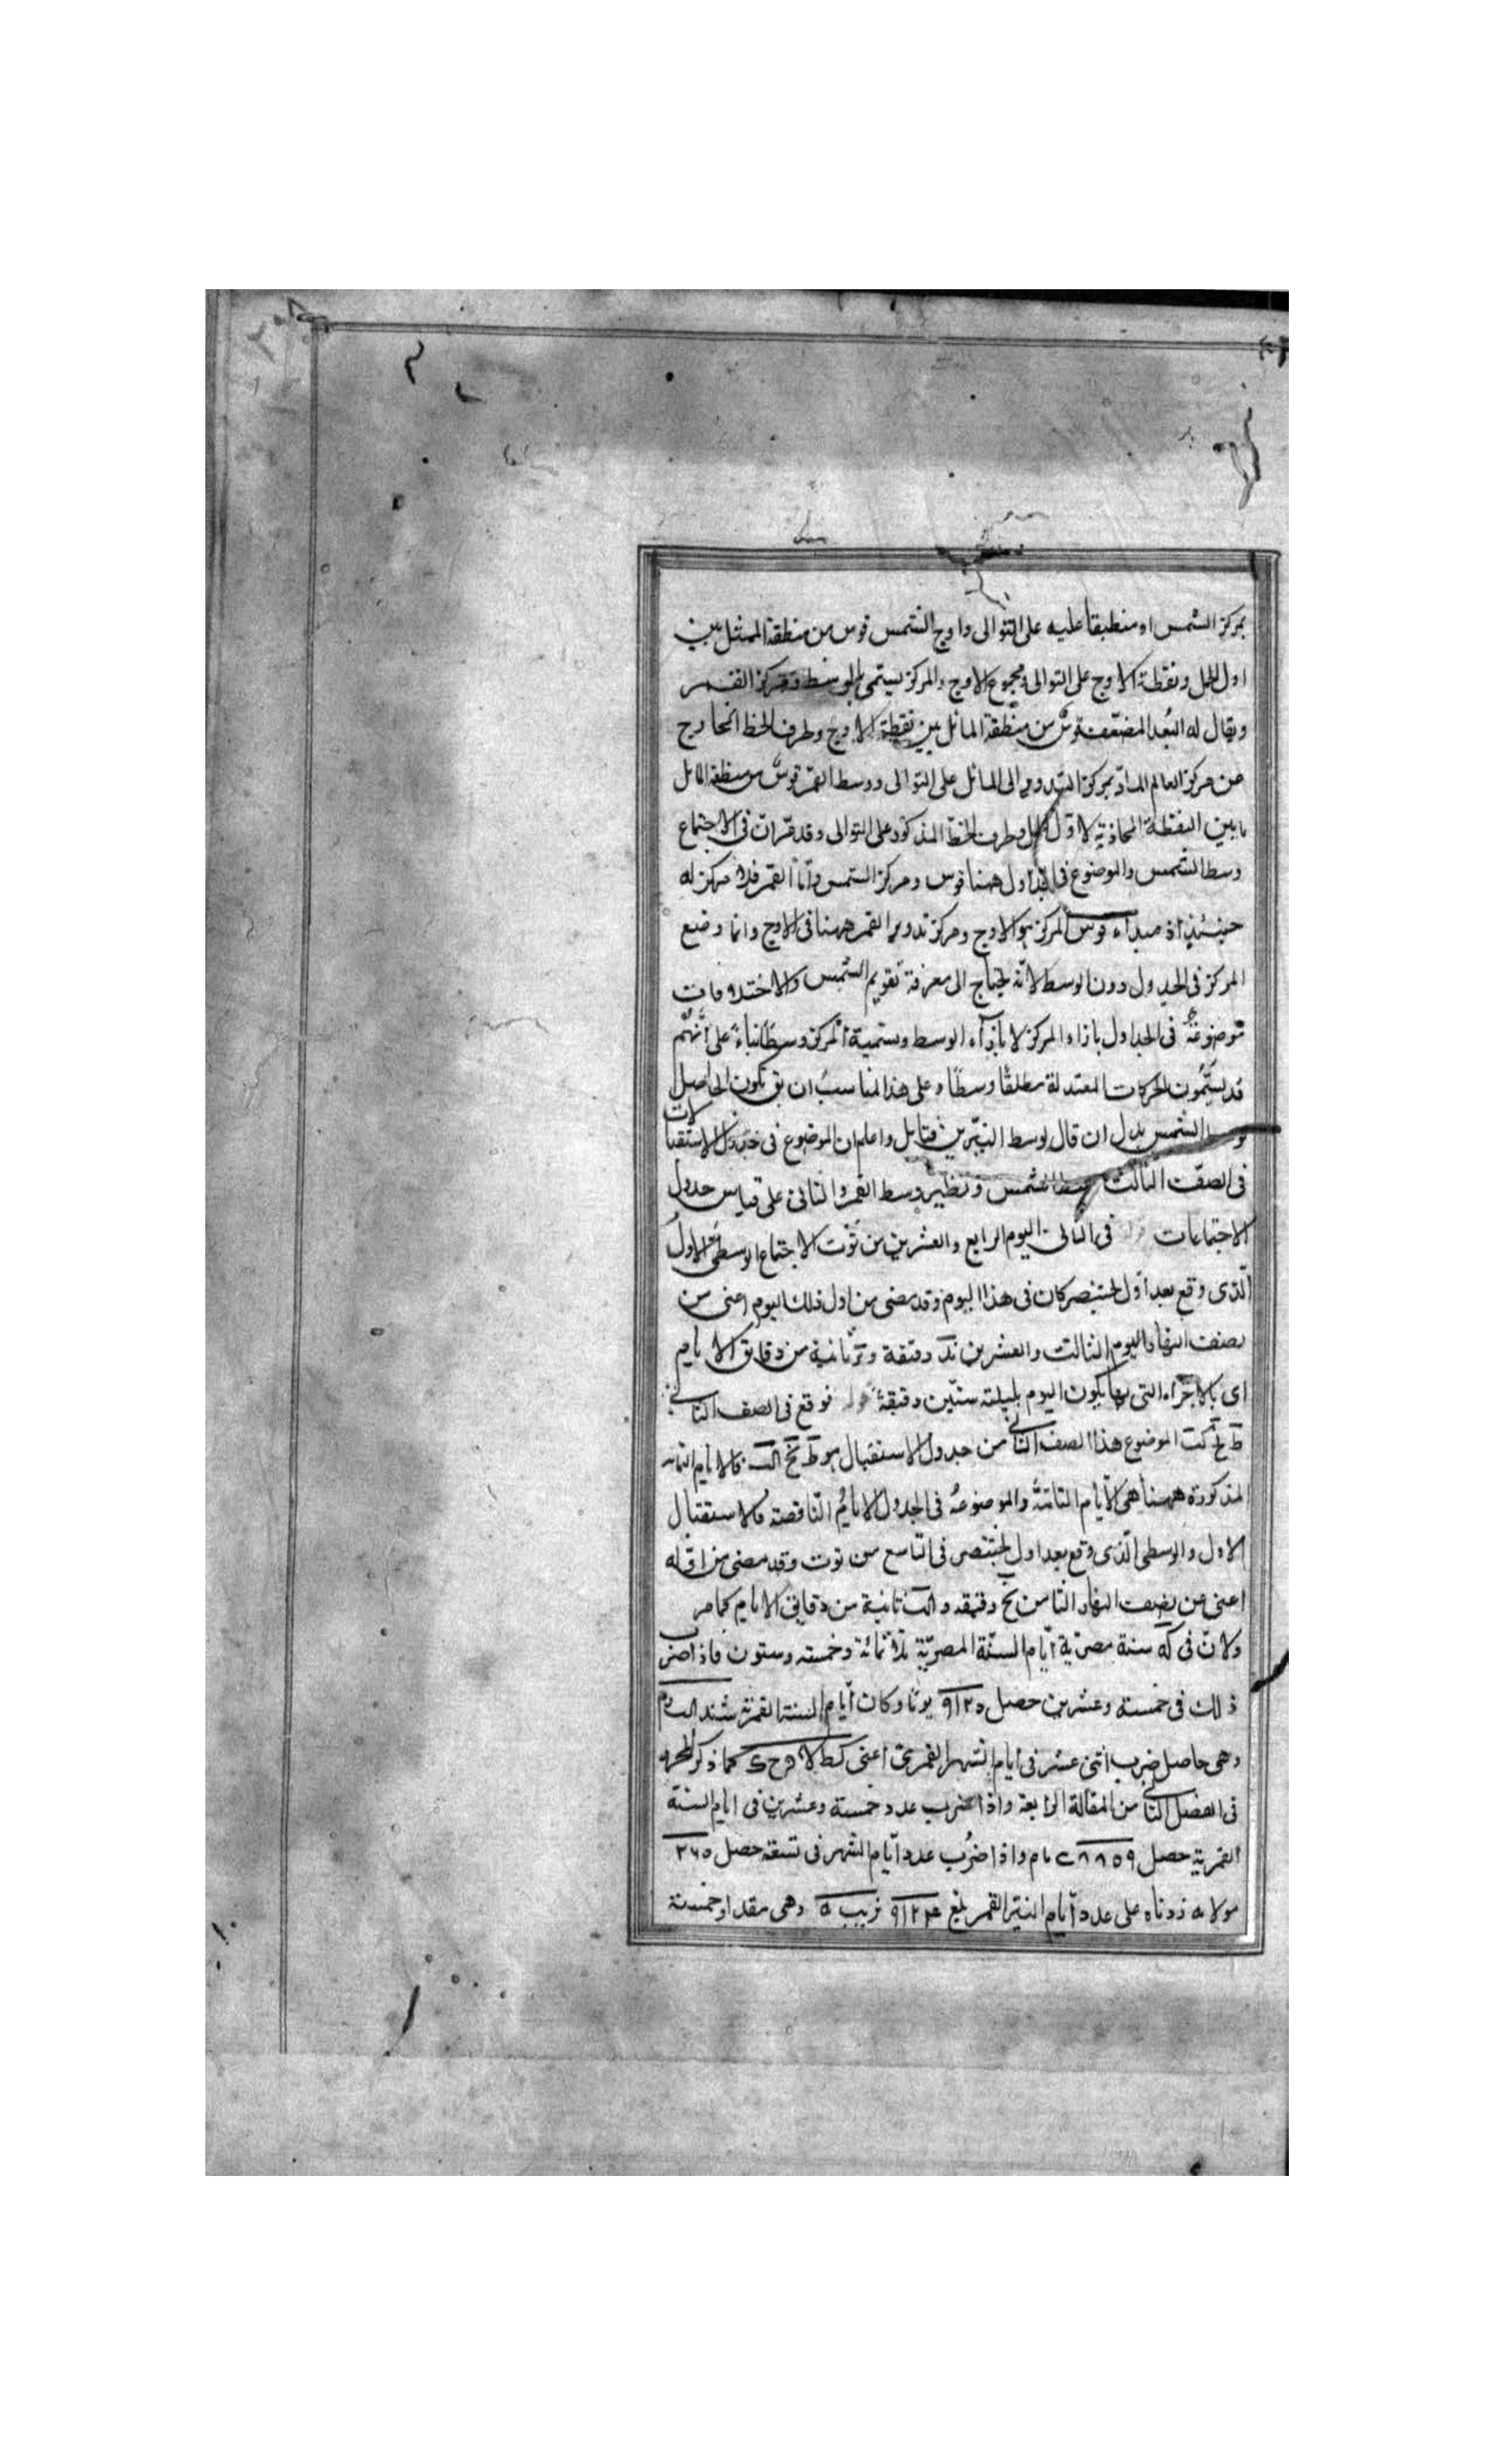 بمركز الشمس او منطبقا عليه على التوالى واوج الشمس قوس من منطقة الممثل بين
اول الحمل ونقطة الاوج على التوالى ومجموع الاوج والمركز يسمى بالوسط ومركز القمر
ويقال له البُعد المضعّف قوسٌ من منطقة المائل بين نقطة الاوج وطرف الخط الخارج
من مركز العالم المارّ بمركز التدوير الى المائل على التوالى ووسط القمر قوسٌ من منطقة المائل
ما بين النقطة المحاذية لاوّل الحمل وطرف الخطّ المذكور على التوالى وقد مرّ انّ فى الاجتماع
وسط الشمس والموضوع فى الجداول ههنا قوس ومركز الشمس وامّا القمر فلا مركز له
حينئذ اذ مبداء قوس المركز هو الاوج ومركز تدوير القمر ههنا فى الاوج وانما وضع
المركز فى الجدول دون الوسط لانّه يحتاج الى معرفة تقويم الشمس والاختلافات
موضوعةٌ فى الجداول بازاء المركز لا بازآء الوسط وتسمية المركز وسطًا بناءً على انّهم
قد يسمّون الحركات المعتدلة مطلقًا وسطًا وعلى هذا المناسبُ ان يق تكون الحاصل
وسط الشمس بدل ان قال وسط النيّرين فتامل واعلم ان الموضوع فى جدول الاستقبالات
فى الصفّ الثالث وسط الشمس ونظير وسط القمر والثانى على قياس جدول
الاجتماعات فى الثانى اليوم الرابع والعشرين من توت الاجتماع الوسطىّ الاول
الّذى وقع بعد اوّل بختنصر كان فى هذا اليوم وقد مضى من اول ذلك اليوم اعنى من
نصف النهار اليوم الثالث والعشرين دقيقة وثانية من دقايق الايام
اى بالاجزاء التى بها يكون اليوم بليلته ستّين دقيقة فوقع فى الصف الثانى
الموضوع هذا الصف الثانى من جدول الاستقبال هو فالايام التامه
المذكورة ههنا هى الايام التامّة والموضوعة فى الجدول الايام النّاقصة فالاستقبال
الاول والوسطى الّذى وقع بعد اول بختنصر فى التاسع من توت وقد مضى من اوّله
اعنى من نصف النهار الثامن نح دقيقه و ثانية من دقايق الايام كما مر
ولانّ فى كه سنة مصريّة ايّام السنّة المصريّة ثلاثمائة وخمسه وستون فاذا ضرب
ذلك فى خمسة وعشرين حصل ٩١٢٥ يومًا وكان ايام السنة القمريّة شند
وهى حاصل ضرب اثنى عشر فى ايام الشهر القمرىّ اعنى كط لا كما ذكر المحرر
فى الفصل الثانى من المقالة الرابعة واذا ضرب عدد خمسة وعشرين فى ايام السنة
القمرية حصل ٨٨٥٩ واذا ضُرب عدد ايّام الشهر فى تسعة حصل ٢٦٥
زدناه على عدد ايّام القمر بلغ ٩١٢٤ وهى مقدار خمسة